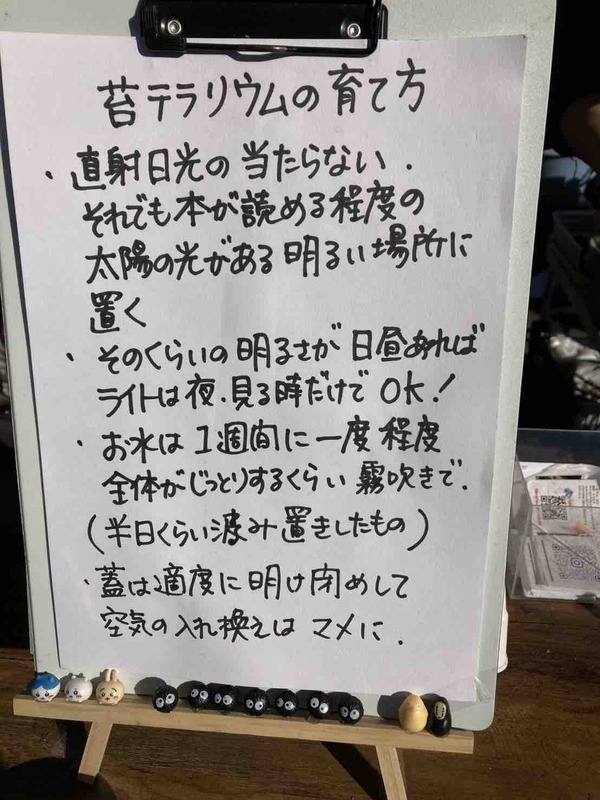 苔テラリウムの育て方
・直射日光の当たらない.
それでも本が読める程度の
太陽の光がある明るい場所に
置く
・そのくらいの明るさが日昼あれば
ライトは夜.見る時だけでOK!
・お水は1週間に一度程度
全体がじっとりするくらい霧吹きで.
(半日くらい汲み置きしたもの)
・蓋は適度に明け閉めして
空気の入れ換えはマメに.